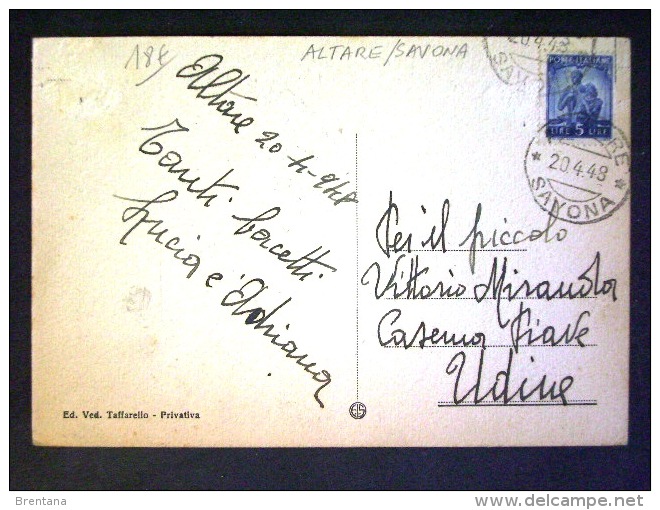 18€
ALTARE/SAVONA
20.4.48
SAV
POSTE ITALIANE
LIRE 5 LIRE
RE
* 20.4.48 *
SAVONA
Altare 20-4-948
Tanti bacetti
Lucia e Adriana
Per il piccolo
Vittorio Mirandola
Caserma Piave
Udine
Ed. Ved. Taffarello - Privativa
Brentana
delcampe.net